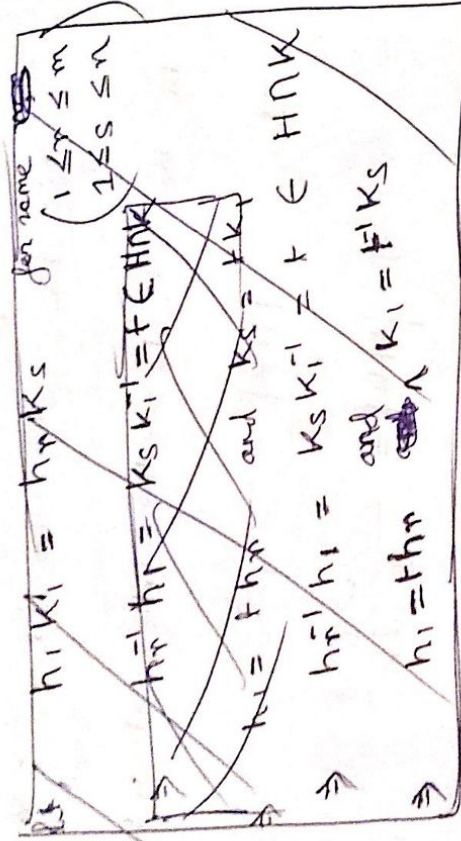 let h₁ k₁ = hᵣ kₛ for some
(1 ≤ r ≤ m
1 ≤ s ≤ n
⇒ hᵣ⁻¹ h₁ = kₛ k₁⁻¹ = t ∈ H∩K
⇒ h₁ = t hᵣ and kₛ = t k₁
⇒ hᵣ⁻¹ h₁ = kₛ k₁⁻¹ = t ∈ H∩K
⇒ h₁ = t hᵣ and k₁ = t⁻¹ kₛ